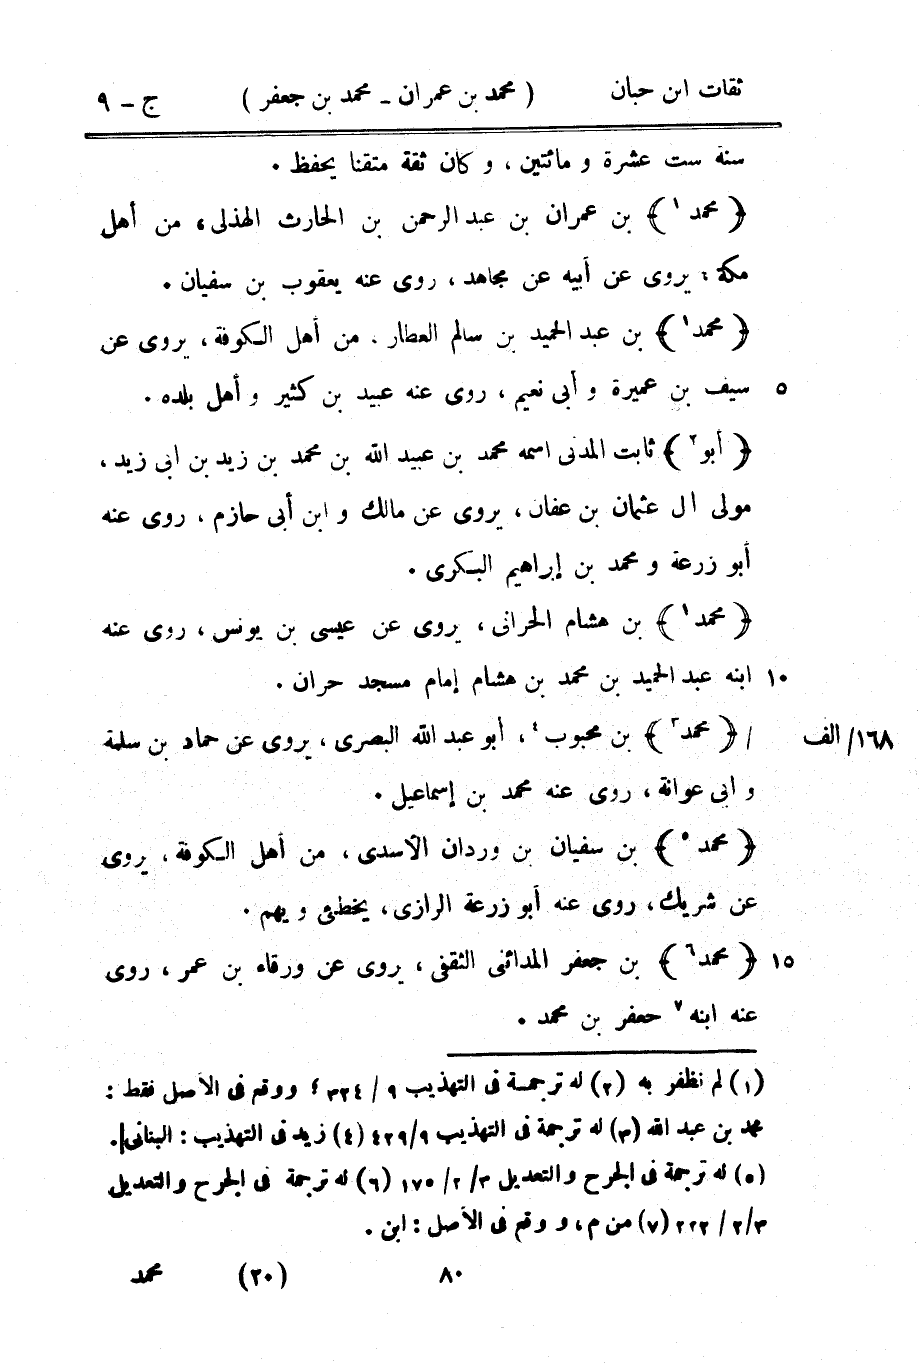 ثقات ابن حبان ( محمد بن عمران ـ محمد بن جعفر ) ج ـ ٩
سنة ست عشرة و مائتين ، و كان ثقة متقنا يحفظ .
﴿ محمد ١ ﴾ بن عمران بن عبد الرحمن بن الحارث الهذلى ، من أهل
مكة ؛ يروى عن أبيه عن مجاهد ، روى عنه يعقوب بن سفيان .
﴿ محمد ١ ﴾ بن عبد الحميد بن سالم العطار . من أهل الكوفة ، يروى عن
٥ سيف بن عميرة و أبى نعيم ، روى عنه عبيد بن كثير و أهل بلده .
﴿ أبو ٢ ﴾ ثابت المدنى اسمه محمد بن عبيد الله بن محمد بن زيد بن ابى زيد ،
مولى آل عثمان بن عفان ، يروى عن مالك و ابن أبى حازم ، روى عنه
أبو زرعة و محمد بن إبراهيم البكرى .
﴿ محمد ١ ﴾ بن هشام الحرانى ، يروى عن عيسى بن يونس ، روى عنه
١٠ ابنه عبد الحميد بن محمد بن هشام إمام مسجد حران .
١٦٨/ الف / ﴿ محمد ٣ ﴾ بن محبوب ٤ ، أبو عبد الله البصرى ، يروى عن حماد بن سلمة
و ابى عوانة ، روى عنه محمد بن إسماعيل .
﴿ محمد ٥ ﴾ بن سفيان بن وردان الأسدى ، من أهل الكوفة ، يروى
عن شريك ، روى عنه أبو زرعة الرازى ، يخطئ و يهم .
١٥ ﴿ محمد ٦ ﴾ بن جعفر المدائنى الثقفى ، يروى عن ورقاء بن عمر ، روى
عنه ابنه ٧ جعفر بن محمد .
(١) لم نظفر به (٢) له ترجمة فى التهذيب ٩ / ٣٢٤ ؛ ووقع فى الأصل فقط :
محمد بن عبد الله (٣) له ترجمة فى التهذيب ٤٢٩/٩ (٤) زيد فى التهذيب : البنانى .
(٥) له ترجمة فى الجرح و التعديل ٣/ ٢/ ١٧٥ (٦) له ترجمة فى الجرح و التعديل
٢٢٢ / ٢/٣ (٧) من م ، و وقع فى الأصل : ابن .
٨٠ (٢٠) محمد